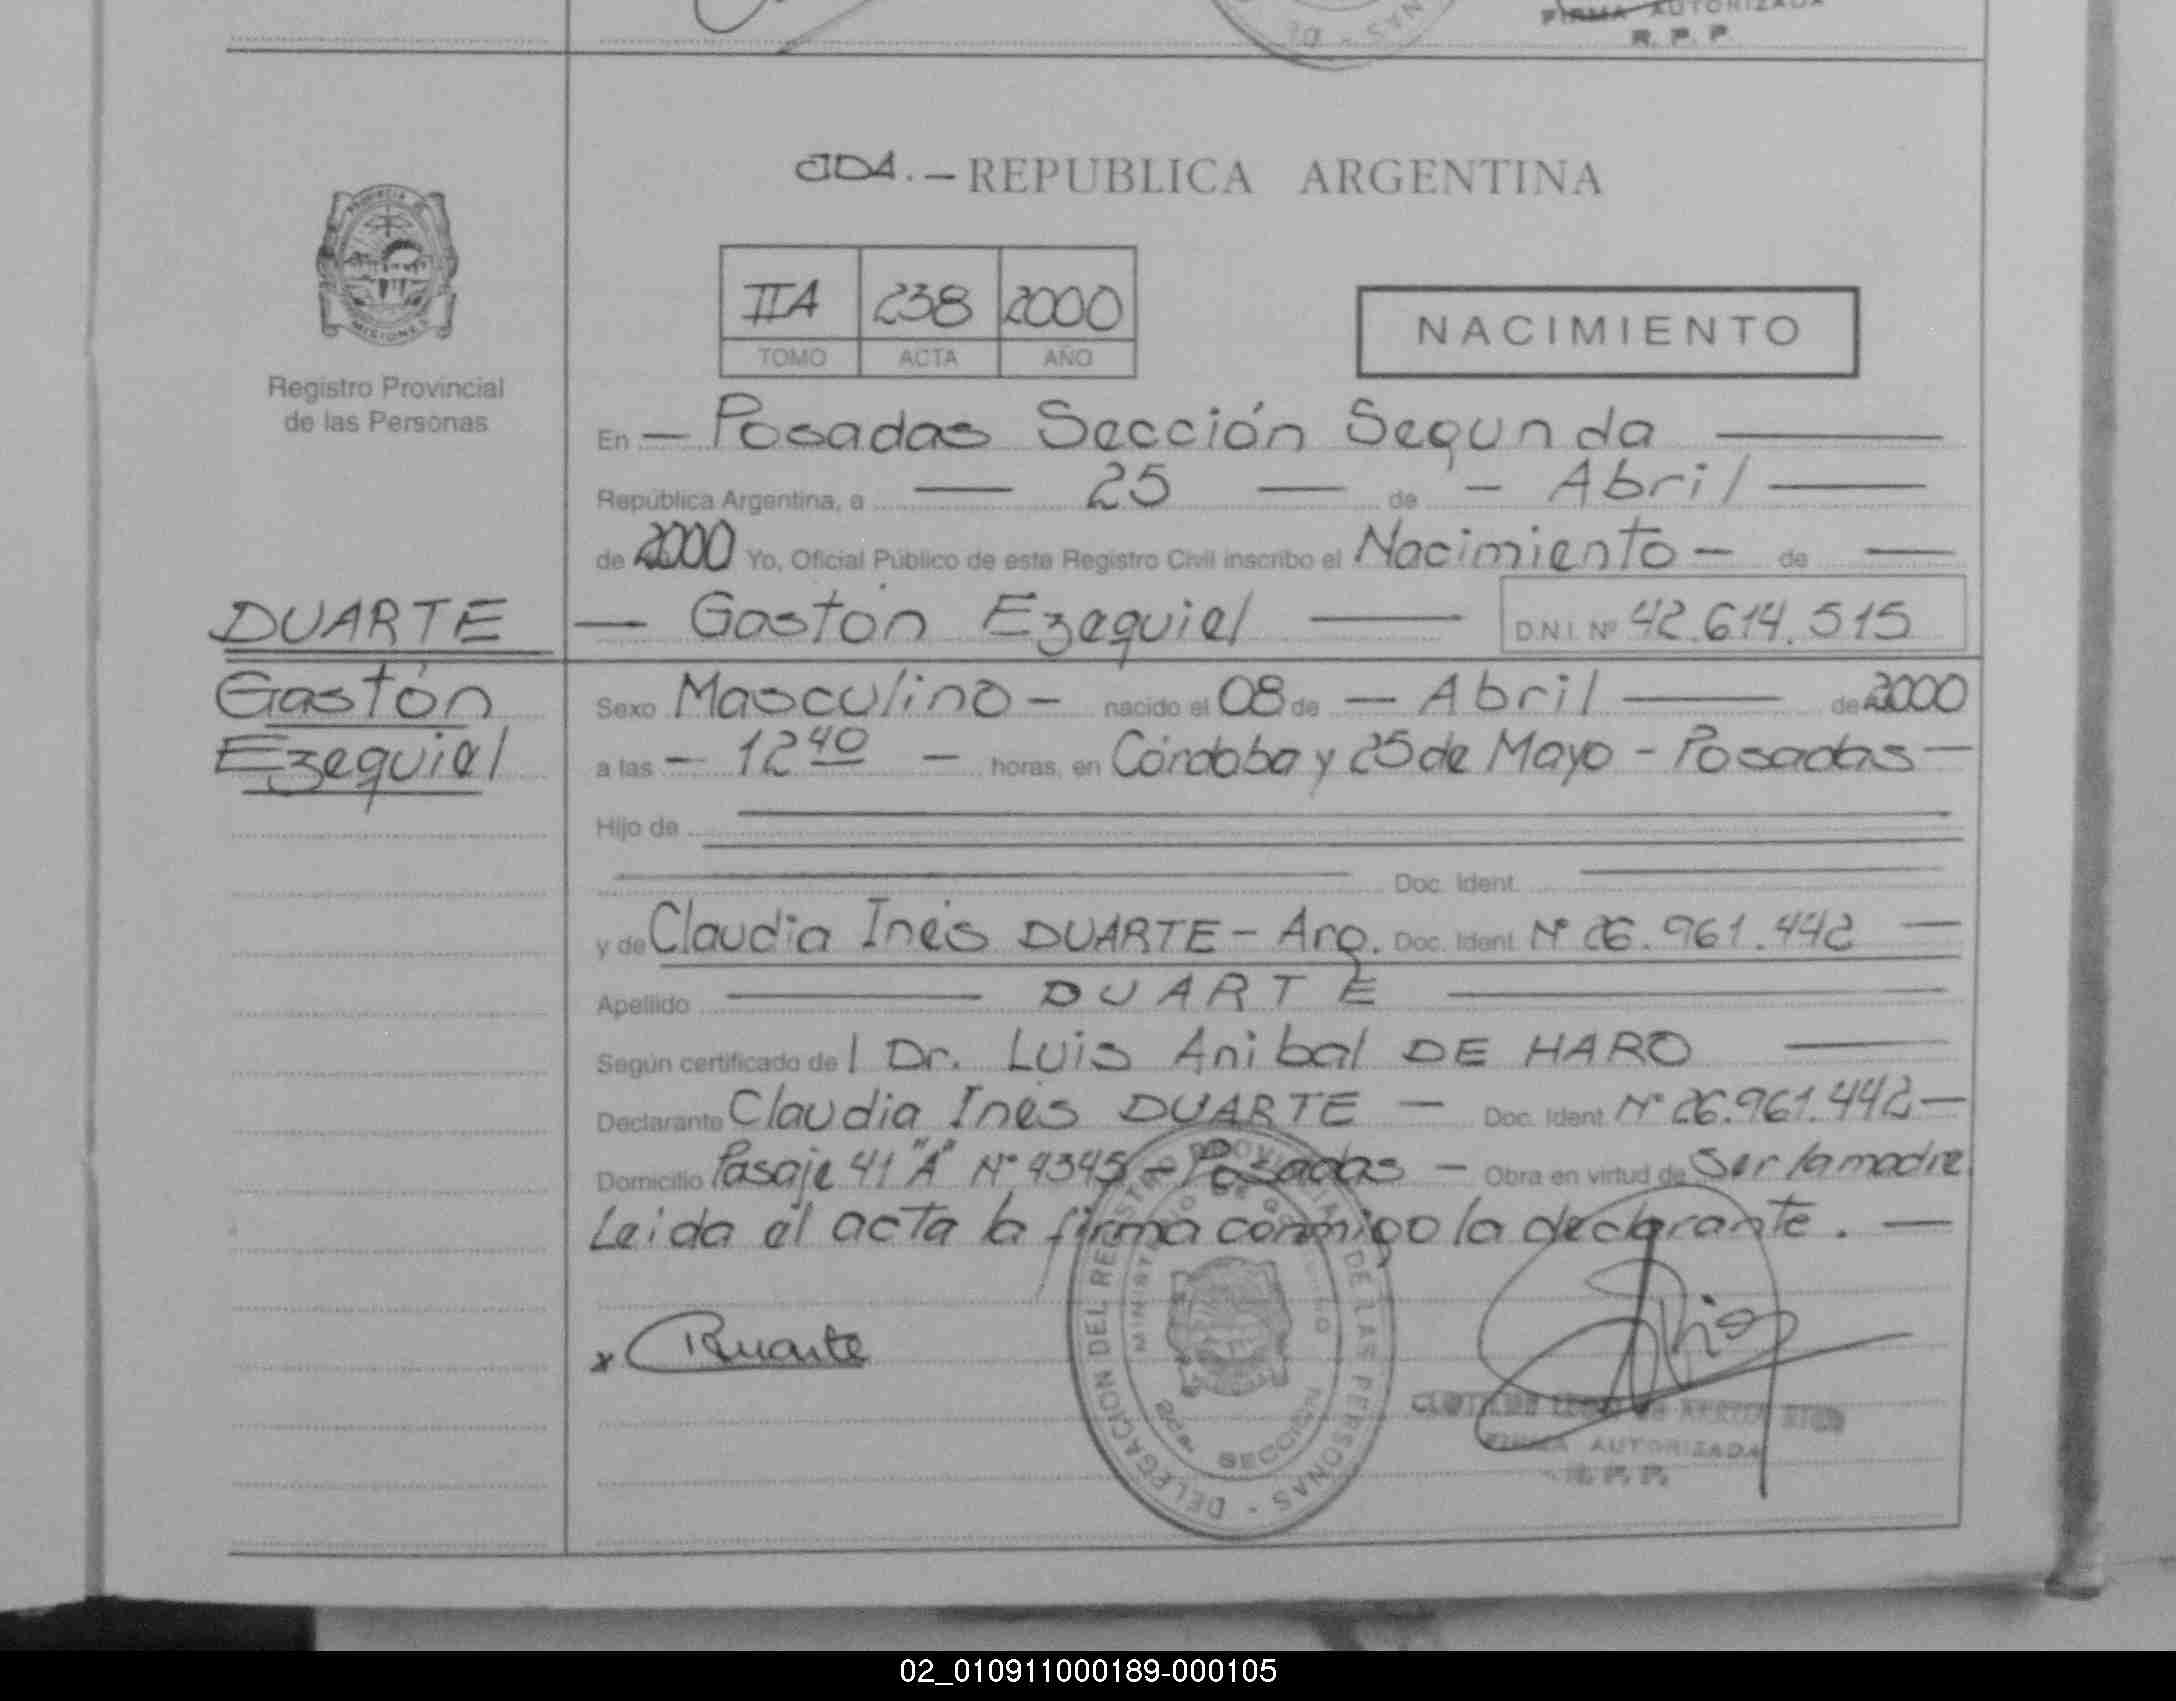 FIRMA AUTORIZADA
R. P. P.
JDA. - REPUBLICA ARGENTINA
PROVINCIA DE
MISIONES
Registro Provincial
de las Personas
IIA 238 2000
TOMO ACTA AÑO
NACIMIENTO
En - Posadas Sección Segunda
República Argentina, a - 25 - de - Abril
de 2000 Yo, Oficial Público de este Registro Civil inscribo el Nacimiento - de
DUARTE
Gastón
Ezequiel
- Gastón Ezequiel - D.N.I. Nº 42.614.515
Sexo Masculino - nacido el 08 de - Abril - de 2000
a las - 12 40 - horas, en Córdoba y 25 de Mayo - Posadas -
Hijo de
Doc. Ident.
y de Claudia Inés DUARTE - Arg. Doc. Ident. Nº 26.961.442 -
Apellido - DUARTE -
Según certificado del Dr. Luis Anibal DE HARO -
Declarante Claudia Inés DUARTE - Doc. Ident. Nº 26.961.442 -
Domicilio Pasaje 41 "A" Nº 4345 - Posadas - Obra en virtud de Ser la madre
Leida el acta la firma conmigo la declarante. -
x Duarte
DELEGACION DEL REGISTRO PROVINCIAL DE LAS PERSONAS
MINISTERIO DE GOBIERNO
2da. SECCION
FIRMA AUTORIZADA
R. P. P.
02_010911000189-000105